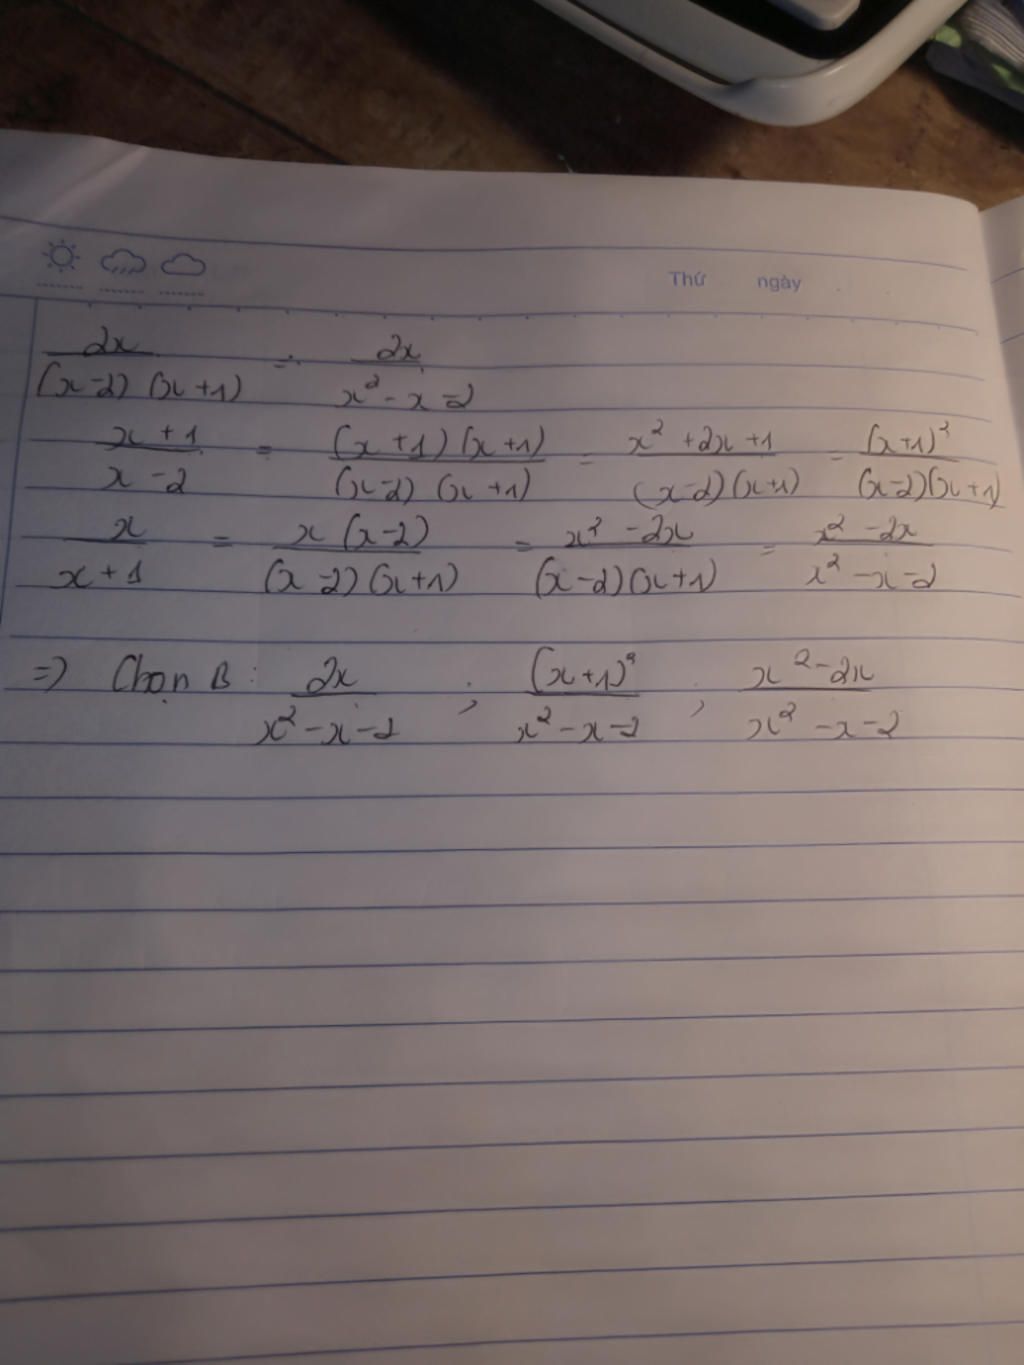 Thứ ngày
2x/((x-2)(x+1)) = 2x/(x²-x-2)
(x+1)/(x-2) = ((x+1)(x+1))/((x-2)(x+1)) = (x²+2x+1)/((x-2)(x+1)) = (x+1)²/((x-2)(x+1))
x/(x+1) = (x(x-2))/((x-2)(x+1)) = (x²-2x)/((x-2)(x+1)) = (x²-2x)/(x²-x-2)
=> Chọn B: 2x/(x²-x-2) ; (x+1)²/(x²-x-2) ; (x²-2x)/(x²-x-2)